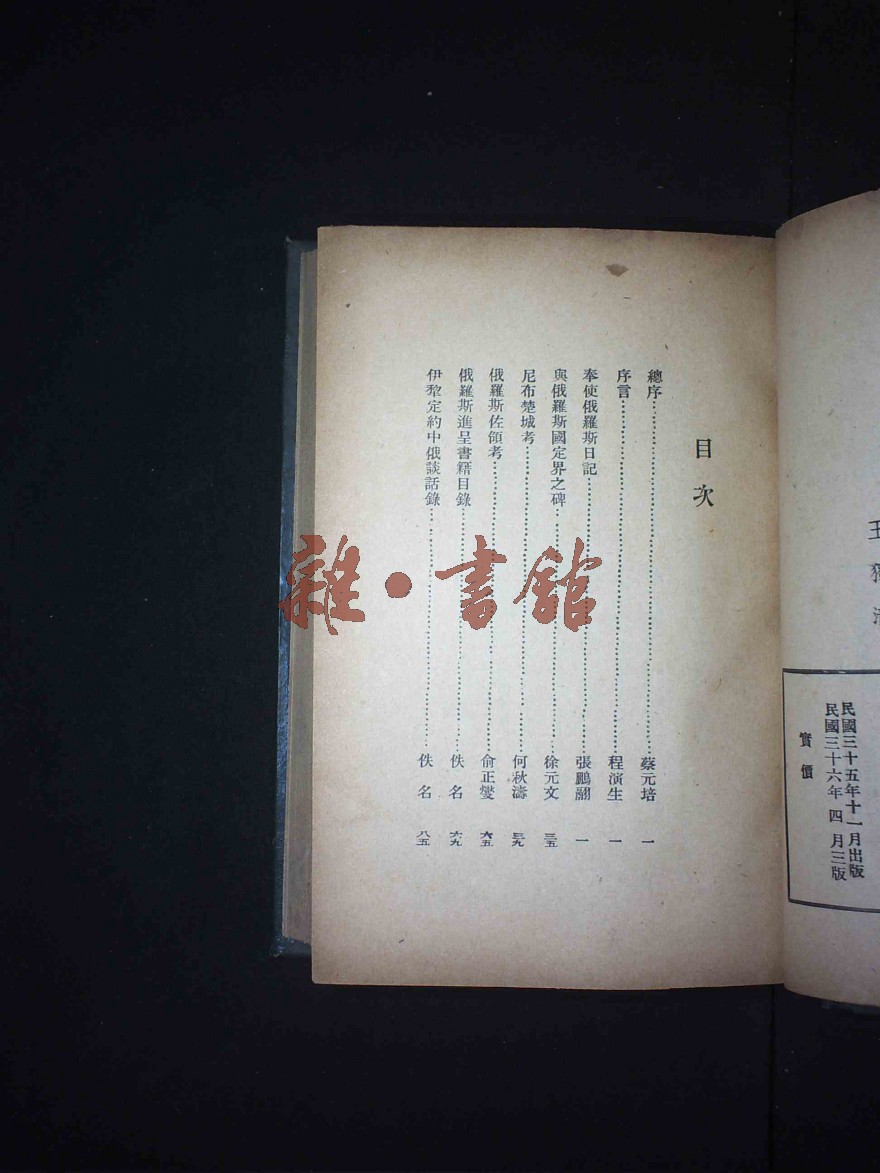 王獨清
民國三十五年十一月出版
民國三十六年四月三版
實價
目次
總序 蔡元培 一
序言 程演生 一
奉使俄羅斯日記 張鵬翮 一
與俄羅斯國定界之碑 徐元文 三五
尼布楚城考 何秋濤 三九
俄羅斯佐領考 俞正燮 六五
俄羅斯進呈書籍目錄 佚名 六九
伊犂定約中俄談話錄 佚名 八五
雜·書館